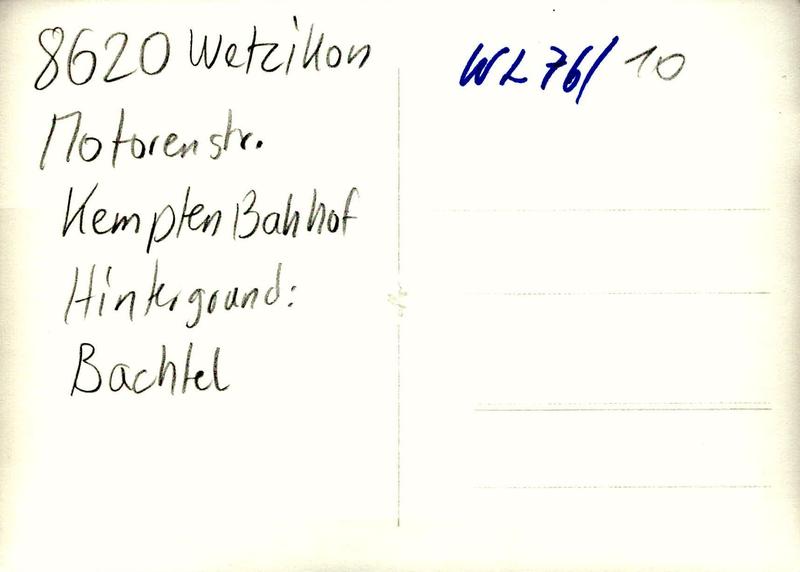 8620 Wetzikon
Motorenstr.
Kempten Bahhof
Hintergrund:
Bachtel
WL 76/ 10